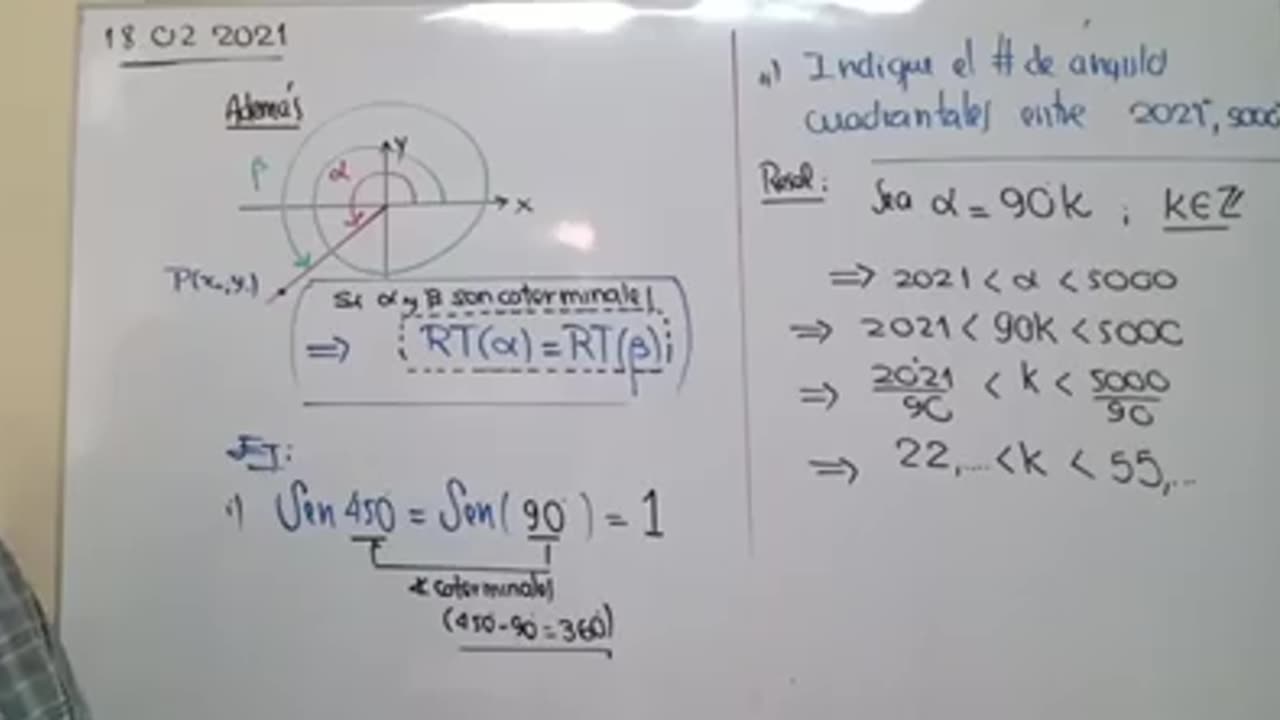 18 02 2021
Además
β
α
y
x
P(x₀,y₀)
Si α y β son coterminales
⇒ RT(α) = RT(β)
EJ:
i) Sen 450° = Sen( 90° ) = 1
∡ coterminales
(450°-90°=360°)
ii) Indique el # de ángulo
cuadrantales entre 2021°, 5000
Resol:
Sea α = 90°k ; k∈ℤ
⇒ 2021 < α < 5000
⇒ 2021 < 90k < 5000
⇒ 2021/90 < k < 5000/90
⇒ 22,... < k < 55,...